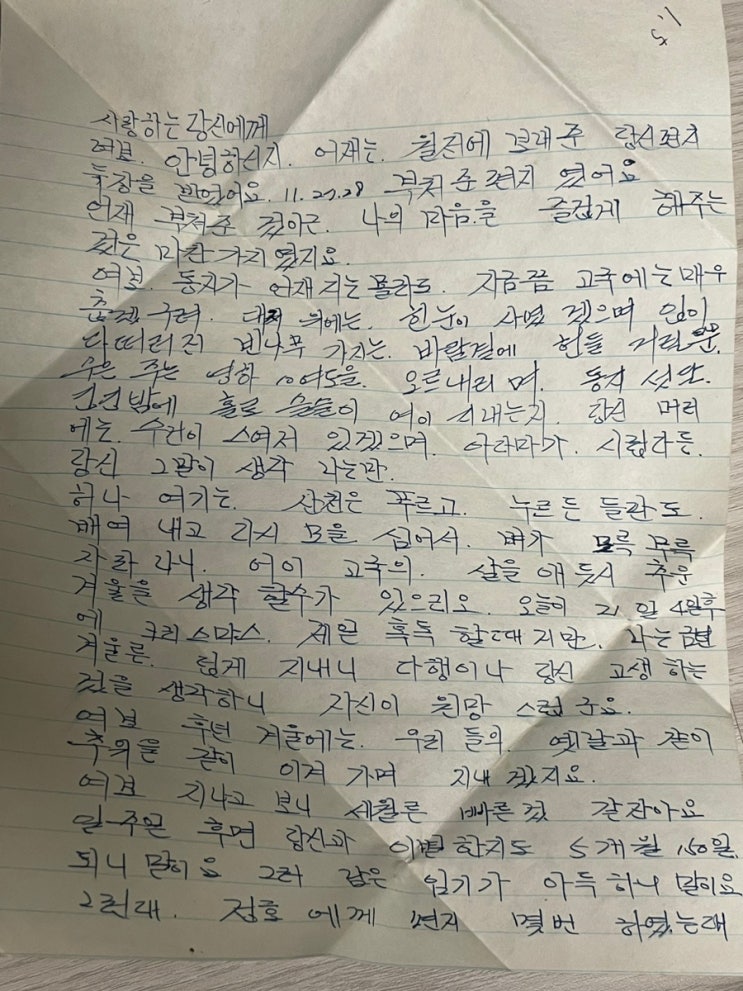 1.5
사랑하는 당신에게
여보. 안녕하신지. 어제는. 일전에 보내 준 당신 편지
두장을 받었어요. 11.27.28 부처준 편지 였어요
언재 부처준 것이른. 나의 마음을 즐겁게 해주는
것은 마찬가지 였지요.
여보. 동지가 언재 지는 몰라도. 지금쯤 고국에는 매우
춥겠구려. 대지 위에는. 힌눈이 사였 겠으며 잎이
다 떠러진 빈나무 가지는. 바람결에 흔들 거리
수은 주는 영하 10여도을. 오르내리며. 동지 섯달.
긴긴밤에 홀로 쓸쓸이 여이 지내는지. 당신 머리
에는. 수건이 스여저 있겠으며. 시럽다는.
당신 그말이 생각 나는만.
허나 여기는. 산천은 푸르고. 누르든 들판도.
배여 내고 다시 모을 심어서. 벼가 무륵
자라 나니. 어이 고국의. 살을 애듯시 추운
겨울을 생각 할수가 있으리오. 오늘이 21일 4일후
에 크리스마스. 제일 혹독 할때 지만. 나는 금년
겨울른. 덥게 지내니 다행이나 당신 고생 하는
것을 생각하니 자신이 원망 스럽군요.
여보 후년 겨울에는. 우리 들의. 옛날과 같이
추위을 같이 이겨 가며 지내겠지요.
여보 지나고 보니 세월른 빠른것 같잔아요
일주일 후면 당신과 이별한지도 5개월 150일.
되니 말이요 그러 남은 임기가 아득하니 말이요
그런대. 정호 에게 편지 몇번 하였는대